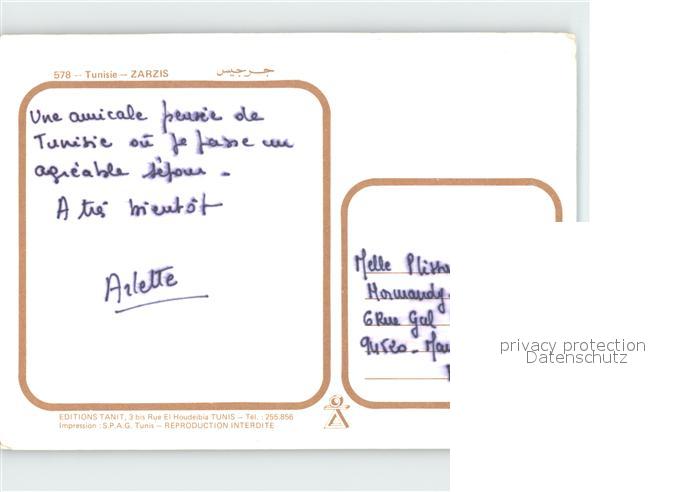 578 -- Tunisie -- ZARZIS جرجيس
Une amicale pensée de
Tunisie où je passe un
agréable séjour.
A très bientôt
Arlette
Melle
Normandy
6 Rue Gal
94520 -
EDITIONS TANIT, 3 bis Rue El Houdeibia TUNIS -- Tél. : 255.856
Impression : S.P.A.G. Tunis -- REPRODUCTION INTERDITE
privacy protection
Datenschutz